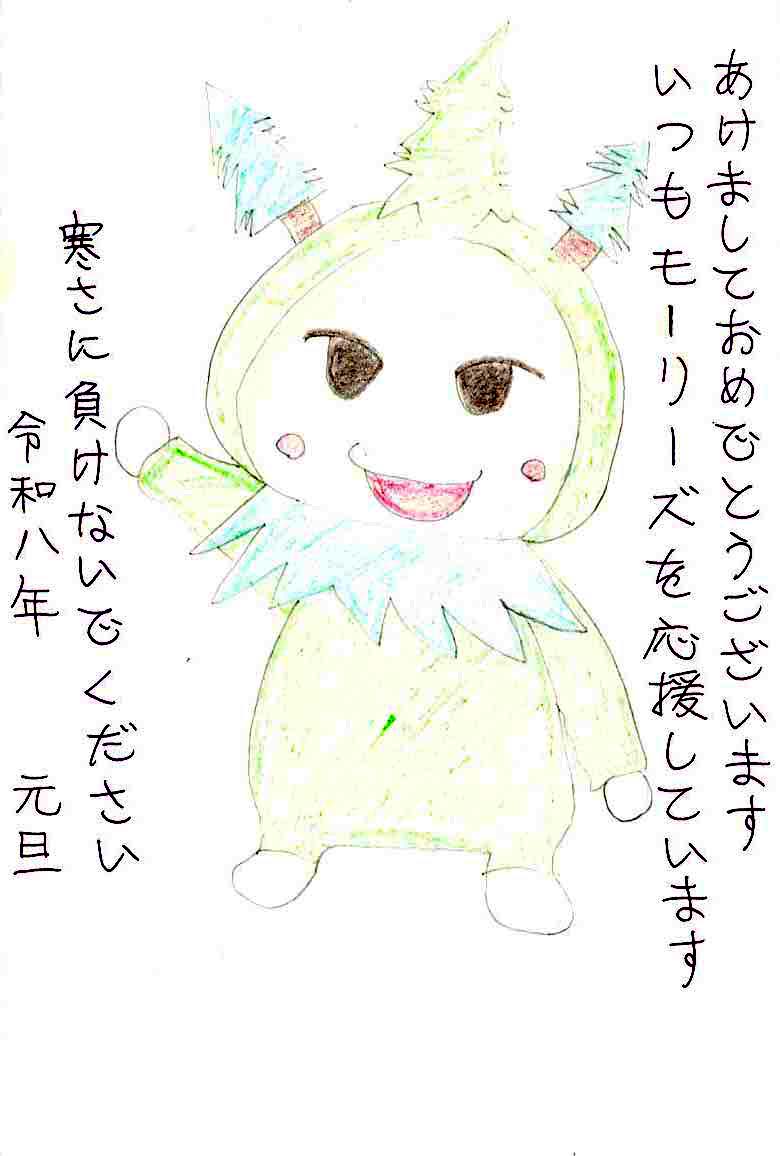 あけましておめでとうございます
いつもモーリーズを応援しています
寒さに負けないでください
令和八年　元旦